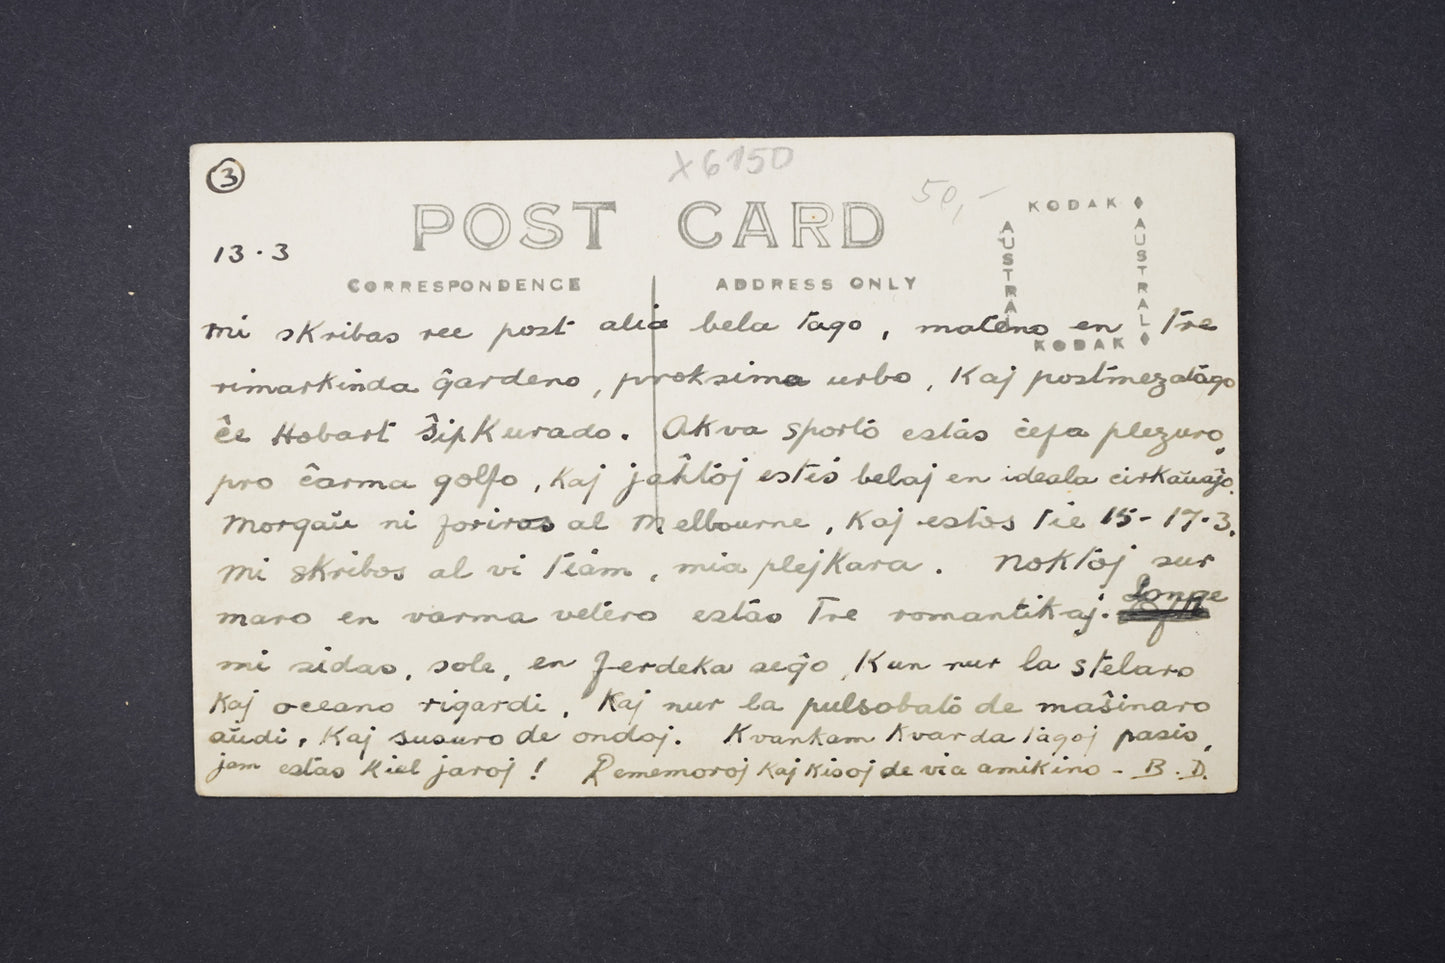 3
X6150
50,-
POST CARD
KODAK
AUSTRAL
AUSTRAL
KODAK
13.3
CORRESPONDENCE
ADDRESS ONLY
mi skribas ree post alia bela tago, mateno en tre
rimarkinda ĝardeno, proksima urbo, kaj postmezatago
ĉe Hobart ŝipkurado. Akva sporto estas ĉefa plezuro,
pro ĉarma golfo, kaj jaĥtoj estis belaj en ideala cirkaŭaĵo.
Morgaŭ ni foriros al Melbourne, kaj estos tie 15-17.3.
Mi skribos al vi tiam, mia plejkara. Noktoj sur
maro en varma vetero estas tre romantikaj. Longe
mi sidas, sole, en ferdeka seĝo, kun nur la stelaro
kaj oceano rigardi, kaj nur la pulsobato de maŝinaro
aŭdi, kaj susuro de ondoj. Kvankam kvarda tagoj pasis,
jam estas kiel jaroj! Rememoroj kaj kisoj de via amikino - B.D.